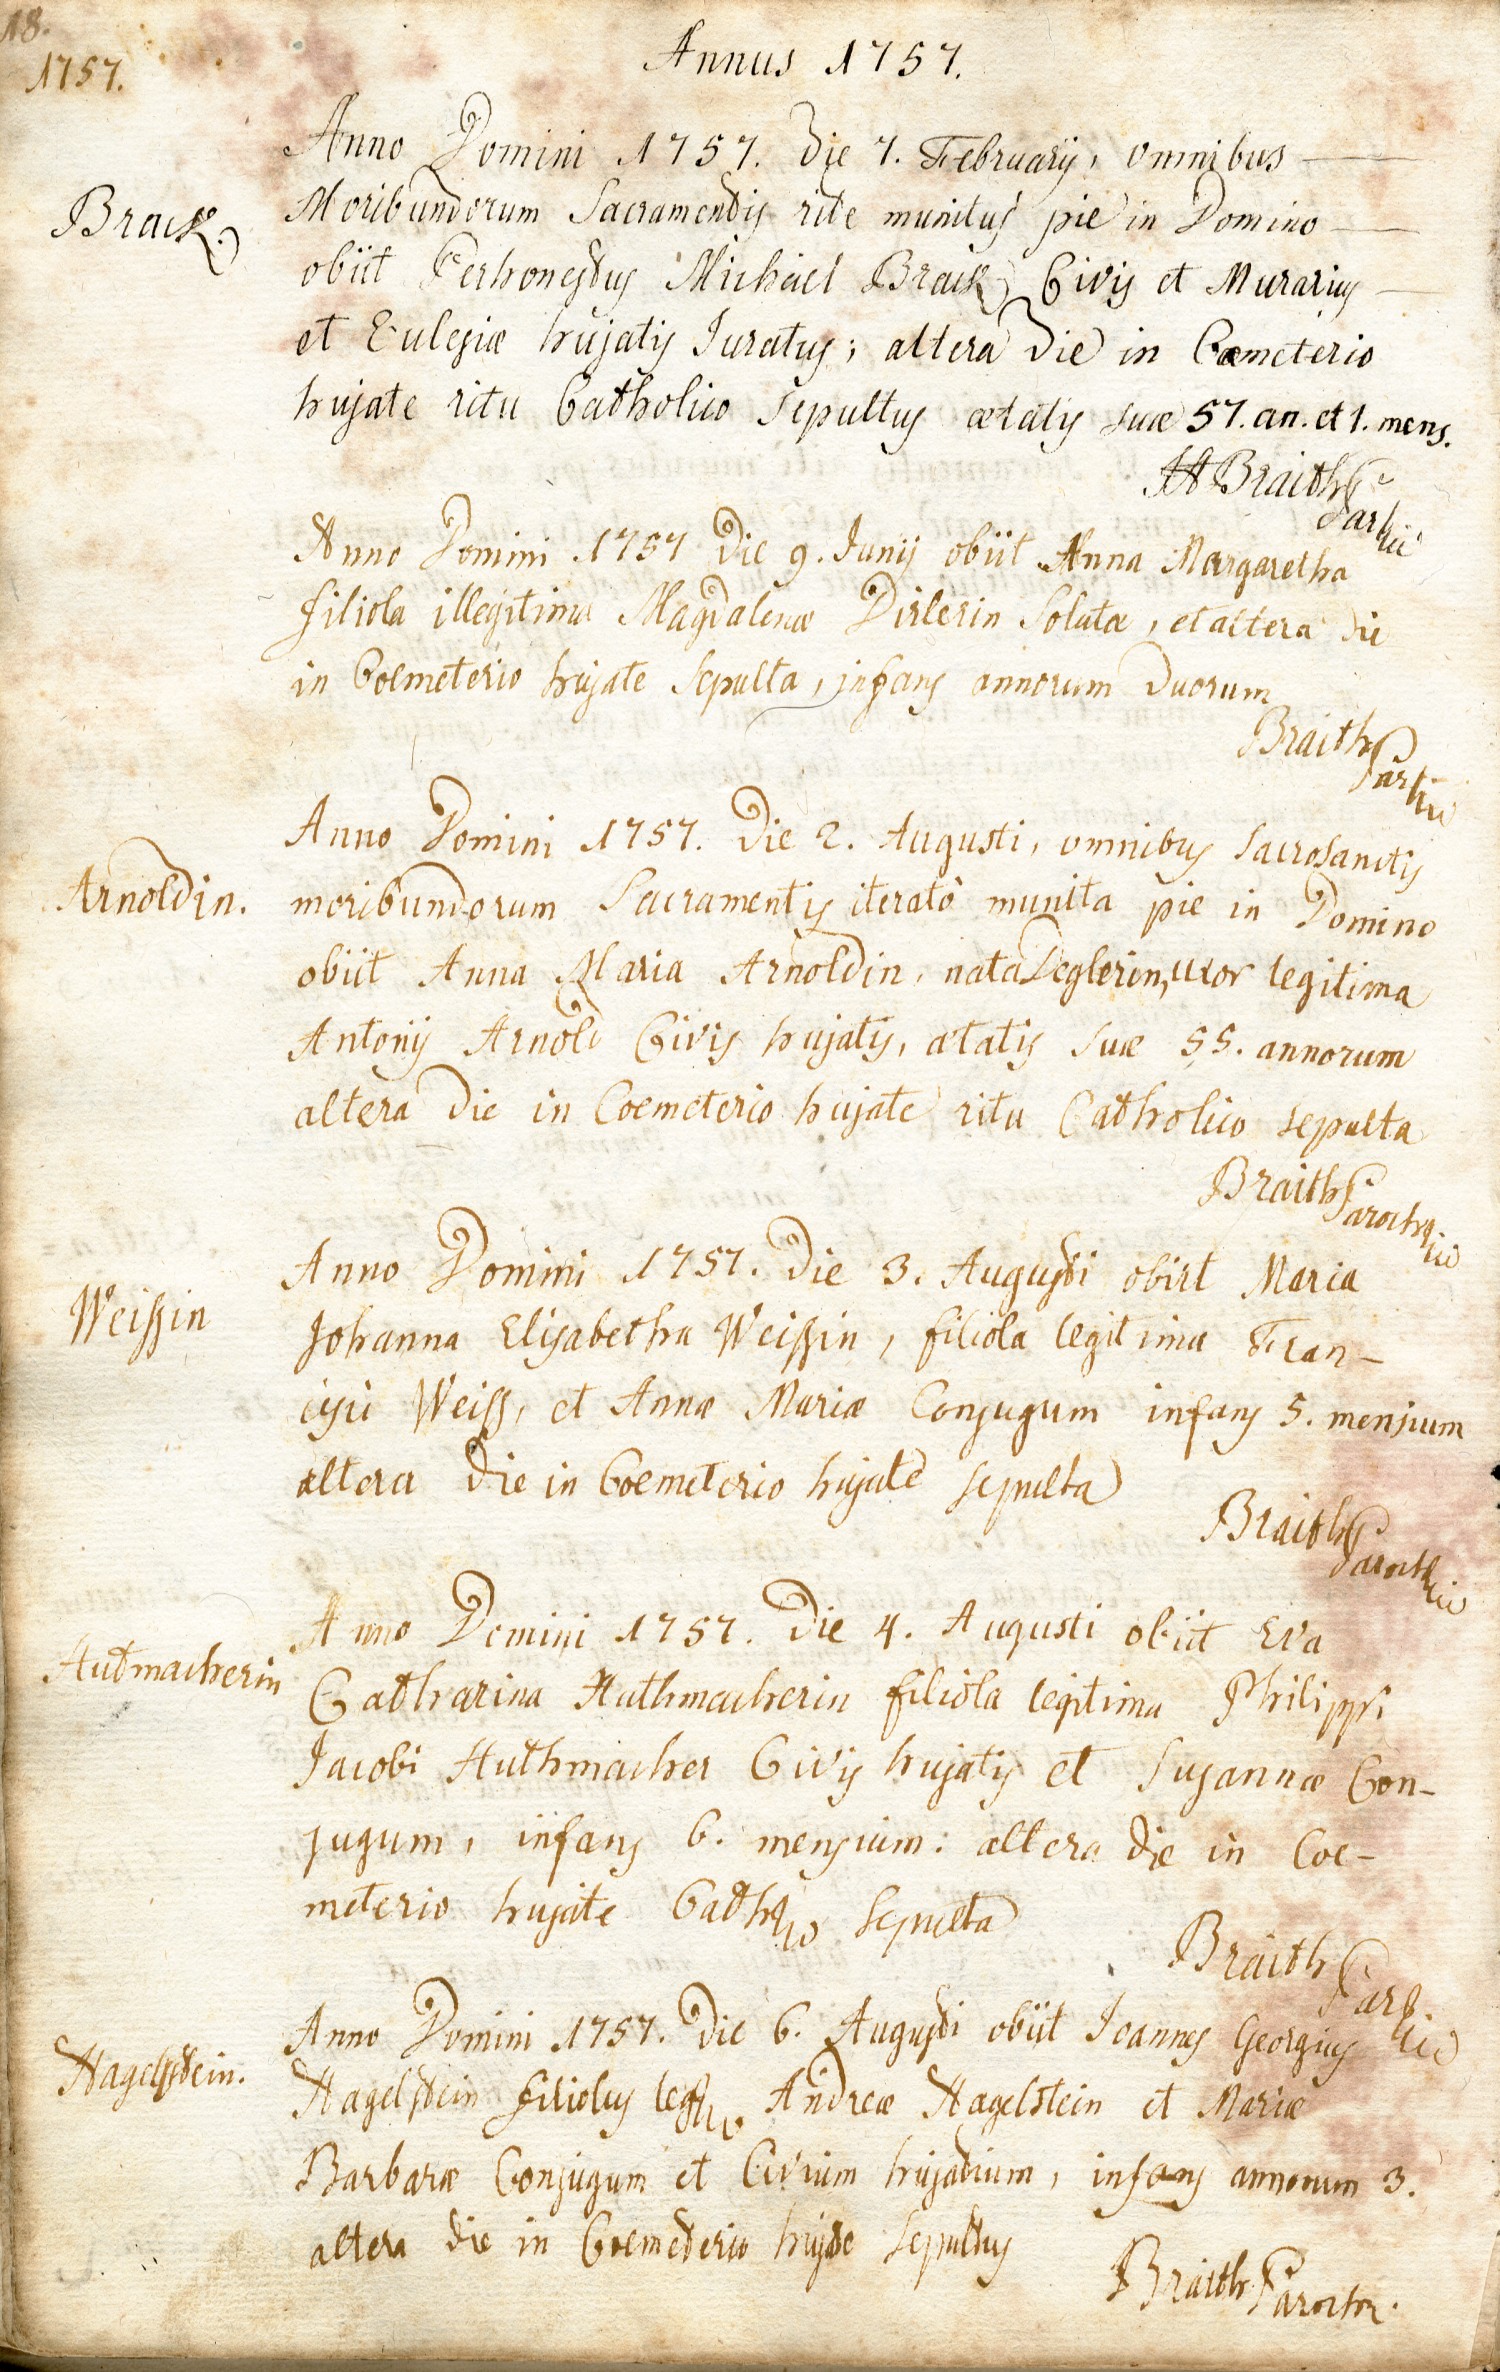 18.
1757.
Annus 1757.
Anno Domini 1757. die 7. Februarij, omnibus
Brack
Moribundorum Sacramentis rite munitus pie in Domino
obiit Perhonestus Michael Brack Civis et Murarius
et Eclesiæ hujatis Juratus; altera die in Cœmeterio
hujate ritu Catholico sepultus ætatis suæ 57. an. et 1. mens.
Braith
Anno Domini 1757 die 9. Junij obiit Anna Margaretha
filiola illegitima Magdalenæ Dirlerin Solutæ, et altera die
in Coemeterio hujate sepulta, infans annorum duorum
Braith
Anno Domini 1757. die 2. Augusti, omnibus Sacrosanctis
Arnoldin.
moribundorum Sacramentis iterato munita pie in Domino
obiit Anna Maria Arnoldin, nata Zeglerin, uxor legitima
Antonij Arnold Civis hujatis, ætatis suæ 55. annorum
altera die in Coemeterio hujate ritu Catholico sepulta
Braith Paroch
Anno Domini 1757. die 3. Augusti obiit Maria
Weissin
Johanna Elisabetha Weissin, filiola legitima Fran-
cisci Weiss, et Annæ Mariæ Conjugum infans 5. mensium
altera die in Coemeterio hujate sepulta
Braith Paroch
Anno Domini 1757. die 4. Augusti obiit Eva
Hutmacherin
Catharina Huthmacherin filiola legitima Philippi
Jacobi Huthmacher Civis hujatis et Susannæ Con-
jugum, infans 6. mensium: altera die in Coe-
meterio hujate Cathco sepulta
Braith
Anno Domini 1757. die 6. Augusti obiit Joannes Georgius
Hagelstein.
Hagelstein filiolus Andreæ Hagelstein et Mariæ
Barbaræ Conjugum et Civium hujatium, infans annorum 3.
altera die in Coemeterio hujate sepultus
Braith Paroch.